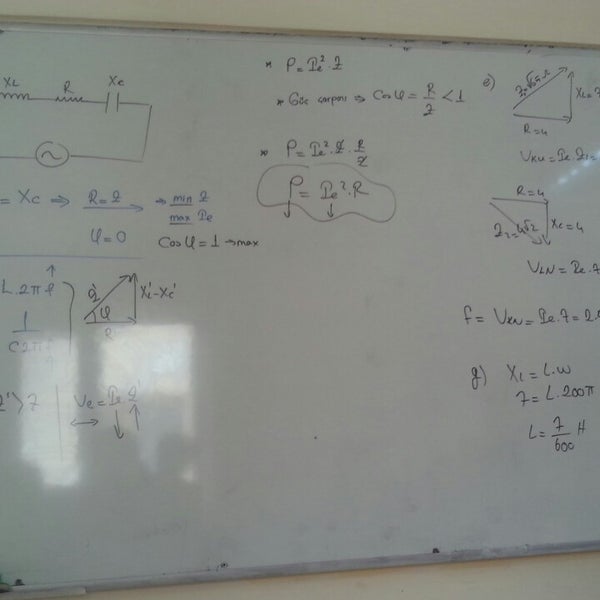 XL R Xc
= Xc ⇒ R = Z → min Z
max Ie
φ = 0 Cosφ = 1 → max
L.2πf
1/C2πf
Z' φ R XL'-Xc'
Z' > Z
Ve = Ie.Z'
* P = Ie².Z
* Güç çarpanı ⇒ Cosφ = R/Z < 1
* P = Ie².Z.R/Z
P = Ie².R
e)
R = 4
XL = 7
VKM = Ie.Z1 =
R = 4
Xc = 4
Z2 = 4√2
VLN = Ie.Z
f = VKN = Ie.7 = 2.
g) XL = L.w
7 = L.200π
L = 7/600 H